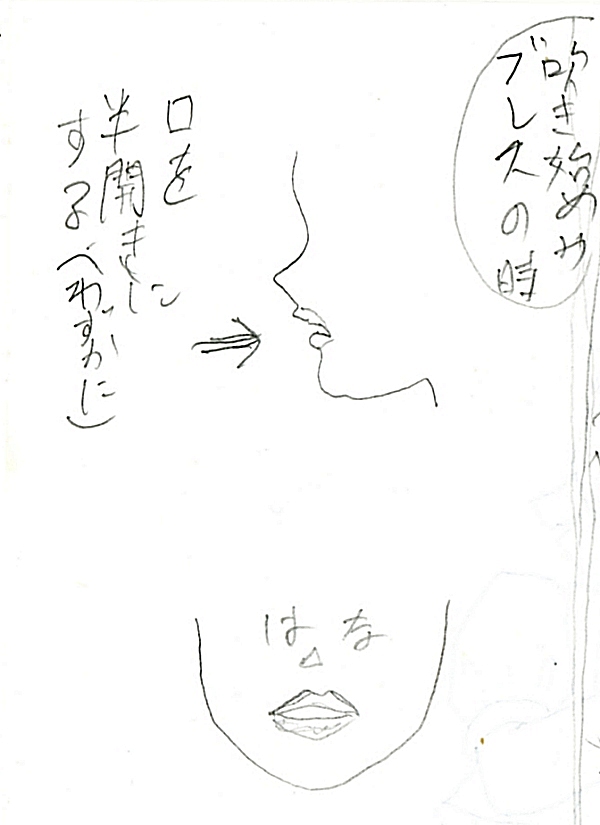 吹き始めや
ブレスの時
口を
半開きに
する(わずかに)
はな